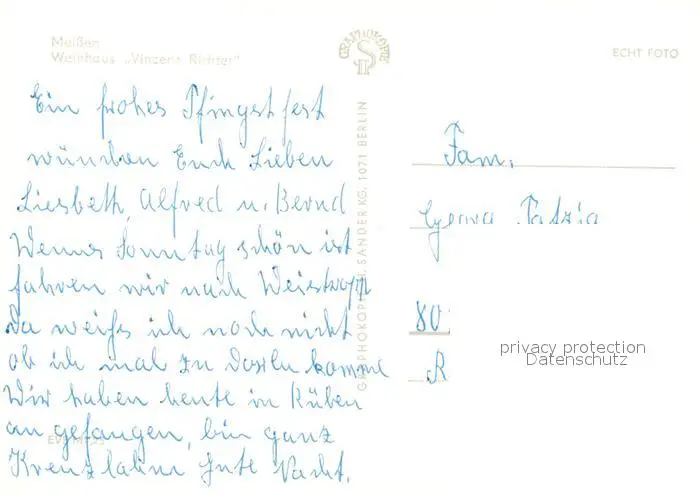 Meißen
Weinhaus „Vinzenz Richter"
ECHT FOTO
GRAPHOKOPIE
GRAPHOKOPIE H. SANDER KG, 1071 BERLIN
Ein frohes Pfingstfest
wünschen Euch Lieben
Liesbeth, Alfred u. Bernd
Wenns Sonntag schön ist
fahren wir nach Weistropp
Da weiß ich noch nicht
ob ich mal zu komme
Wir haben heute in Rüben
an gefangen, bin ganz
Kreuzlahm Gute Nacht.
Fam.
80
R
privacy protection
Datenschutz